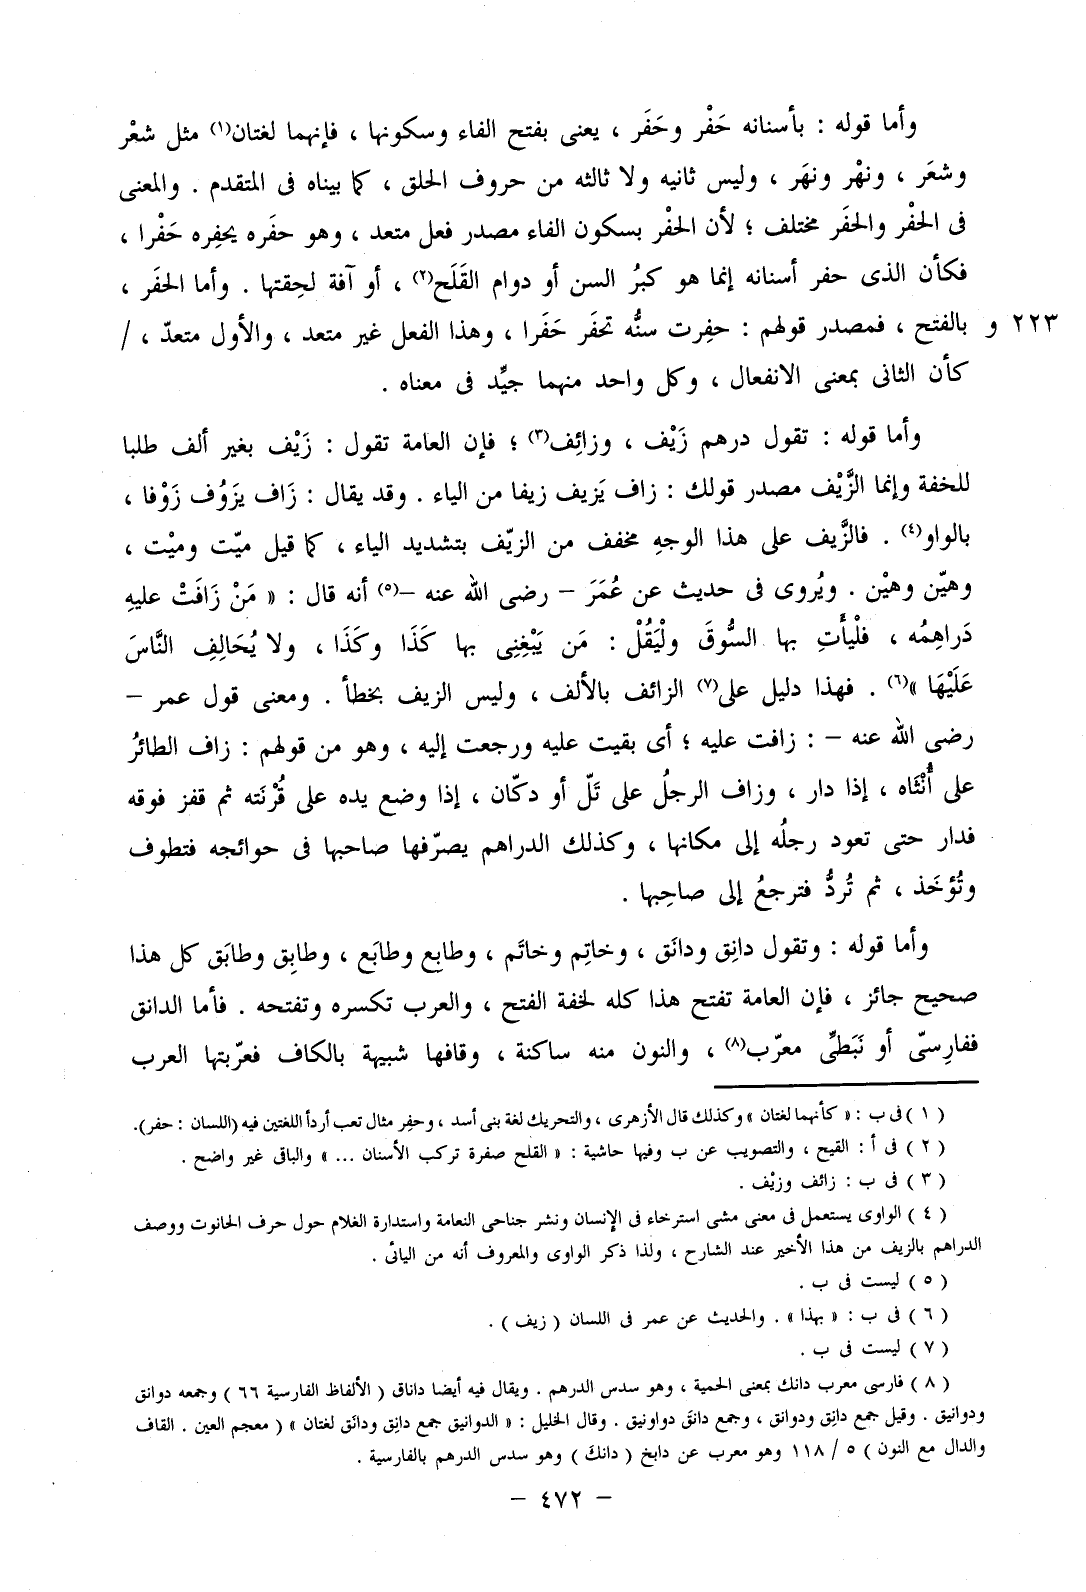 وأما قوله : بأسنانه حَفْر وحَفَر ، يعنى بفتح الفاء وسكونها ، فإنهما لغتان(١) مثل شعْر
وشعَر ، ونهْر ونهَر ، وليس ثانيه ولا ثالثه من حروف الحلق ، كما بيناه فى المتقدم . والمعنى
فى الحفْر والحفَر مختلف ؛ لأن الحفْر بسكون الفاء مصدر فعل متعد ، وهو حفَره يحفِره حَفْرا ،
فكأن الذى حفر أسنانه إنما هو كبرُ السن أو دوام القَلَح(٢) ، أو آفة لحِقتها . وأما الحفَر ،
٢٢٣ و بالفتح ، فمصدر قولهم : حفِرت سنُّه تحفَر حَفَرا ، وهذا الفعل غير متعد ، والأول متعدّ ، /
كأن الثانى بمعنى الانفعال ، وكل واحد منهما جيِّد فى معناه .
وأما قوله : تقول درهم زَيْف ، وزائِف(٣) ؛ فإن العامة تقول : زَيْف بغير ألف طلبا
للخفة وإنما الزَّيْف مصدر قولك : زاف يَزيف زيفا من الياء . وقد يقال : زَاف يزَوُف زَوْفا ،
بالواو(٤) . فالزَّيف على هذا الوجهِ مخفف من الزيّف بتشديد الياء ، كما قيل ميّت وميْت ،
وهيّن وهيْن . ويُروى فى حديث عن عُمَرَ – رضى الله عنه –(٥) أنه قال : « مَنْ زَافَتْ عليهِ
دَراهِمُه ، فلْيأَتِ بها السُّوقَ ولْيَقُلْ : مَن يَبْغِنِى بها كَذَا وكَذَا ، ولا يُحَالِفِ النَّاسَ
عَلَيْهَا »(٦) . فهذا دليل على(٧) الزائف بالألف ، وليس الزيف بخطأ . ومعنى قول عمر –
رضى الله عنه – : زافت عليه ؛ أى بقيت عليه ورجعت إليه ، وهو من قولهم : زاف الطائرُ
على أُنْثَاه ، إذا دار ، وزاف الرجلُ على تَلّ أو دكّان ، إذا وضع يده على قُرْنَته ثم قفز فوقه
فدار حتى تعود رجلُه إلى مكانها ، وكذلك الدراهم يصرّفها صاحبها فى حوائجه فتطوف
وتُؤخَذ ، ثم تُردُّ فترجعُ إلى صاحِبها .
وأما قوله : وتقول دانِق ودانَق ، وخاتِم وخاتَم ، وطابِع وطابَع ، وطابِق وطابَق كل هذا
صحيح جائز ، فإن العامة تفتح هذا كله لخفة الفتح ، والعرب تكسره وتفتحه . فأما الدانق
ففارسىّ أو نَبَطىٌّ معرّب(٨) ، والنون منه ساكنة ، وقافها شبيهة بالكاف فعرّبتها العرب
( ١ ) فى ب : « كأنهما لغتان » وكذلك قال الأزهرى ، والتحريك لغة بنى أسد ، وحفِر مثال تعب أردأ اللغتين فيه (اللسان : حفر).
( ٢ ) فى أ : القيح ، والتصويب عن ب وفيها حاشية : « القلح صفرة تركب الأسنان ... » والباقى غير واضح .
( ٣ ) فى ب : زائف وزيْف .
( ٤ ) الواوى يستعمل فى معنى مشى استرخاء فى الإنسان ونشر جناحى النعامة واستدارة الغلام حول حرف الحانوت ووصف
الدراهم بالزيف من هذا الأخير عند الشارح ، ولذا ذكر الواوى والمعروف أنه من اليائى .
( ٥ ) ليست فى ب .
( ٦ ) فى ب : « بهذا » . والحديث عن عمر فى اللسان ( زيف ) .
( ٧ ) ليست فى ب .
( ٨ ) فارسى معرب دانك بمعنى الحمية ، وهو سدس الدرهم . ويقال فيه أيضا داناق ( الألفاظ الفارسية ٦٦ ) وجمعه دوانق
ودوانيق . وقيل جمع دانِق ودوانق ، وجمع دانَق دوانيق . وقال الخليل : « الدوانيق جمع دانِق ودانَق لغتان » ( معجم العين . القاف
والدال مع النون ) ٥ / ١١٨ وهو معرب عن دابخ ( دانكَ ) وهو سدس الدرهم بالفارسية .
– ٤٧٢ –